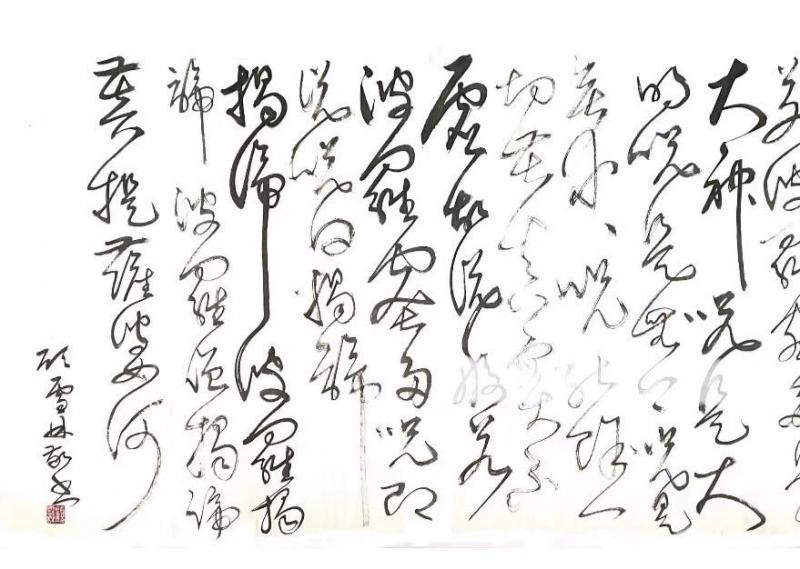 若波羅蜜多
大神咒是大
明咒是無上咒是
無等、咒能除一
切苦真實不
虛故說般若
波羅蜜多咒即
說咒曰揭諦
揭諦波羅揭
諦波羅僧揭諦
菩提薩婆訶
雪林敬書